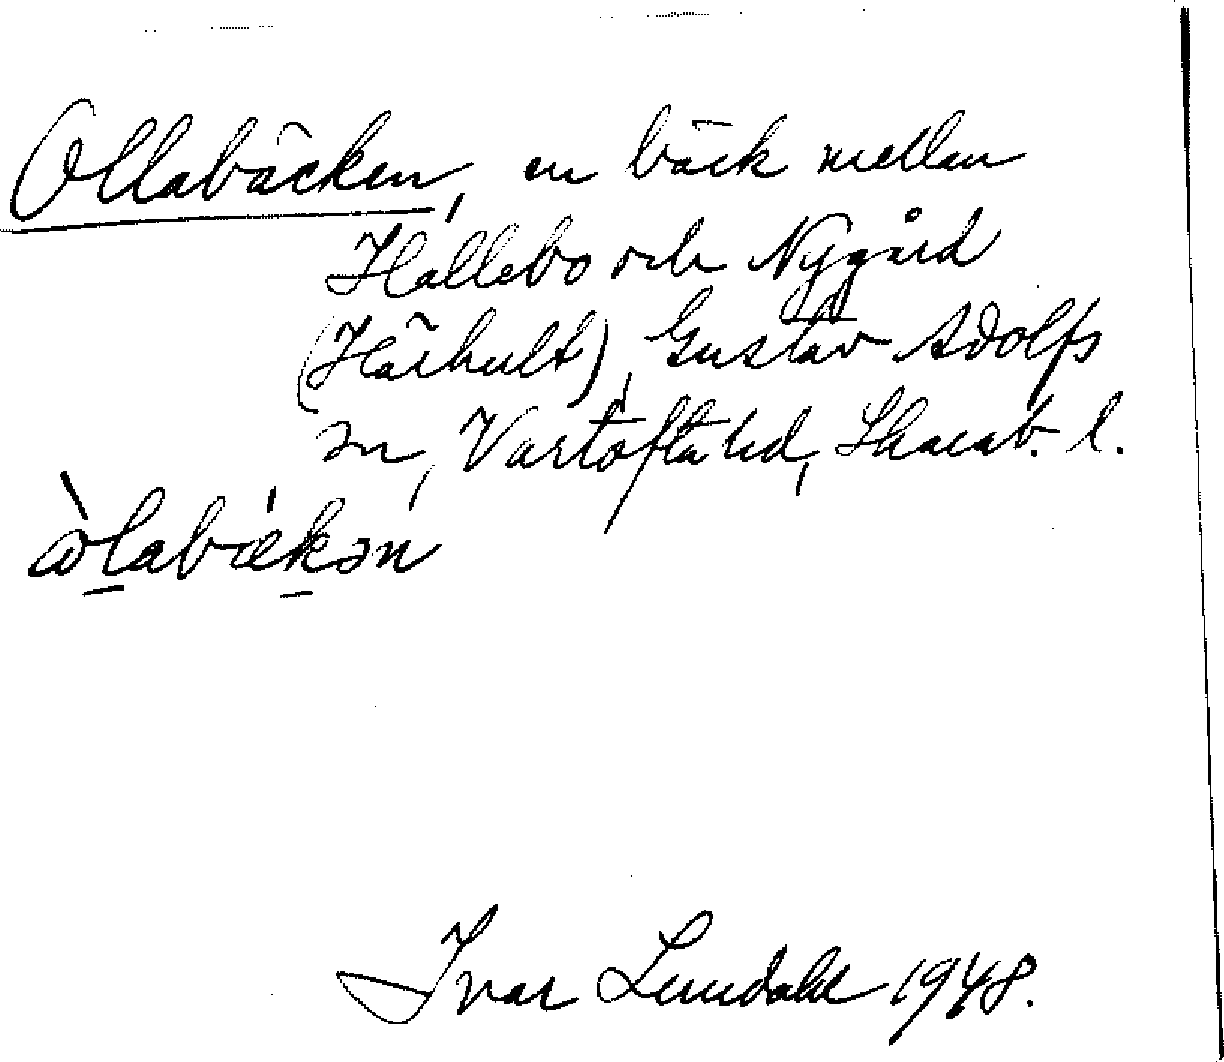 Ollabäcken, en bäck mellan
Hallebo och Nygård
(Härhult), Gustav Adolfs
sn, Vartofta hd, Skarab. l.
ὼlabækən
Ivar Lundahl 1948.